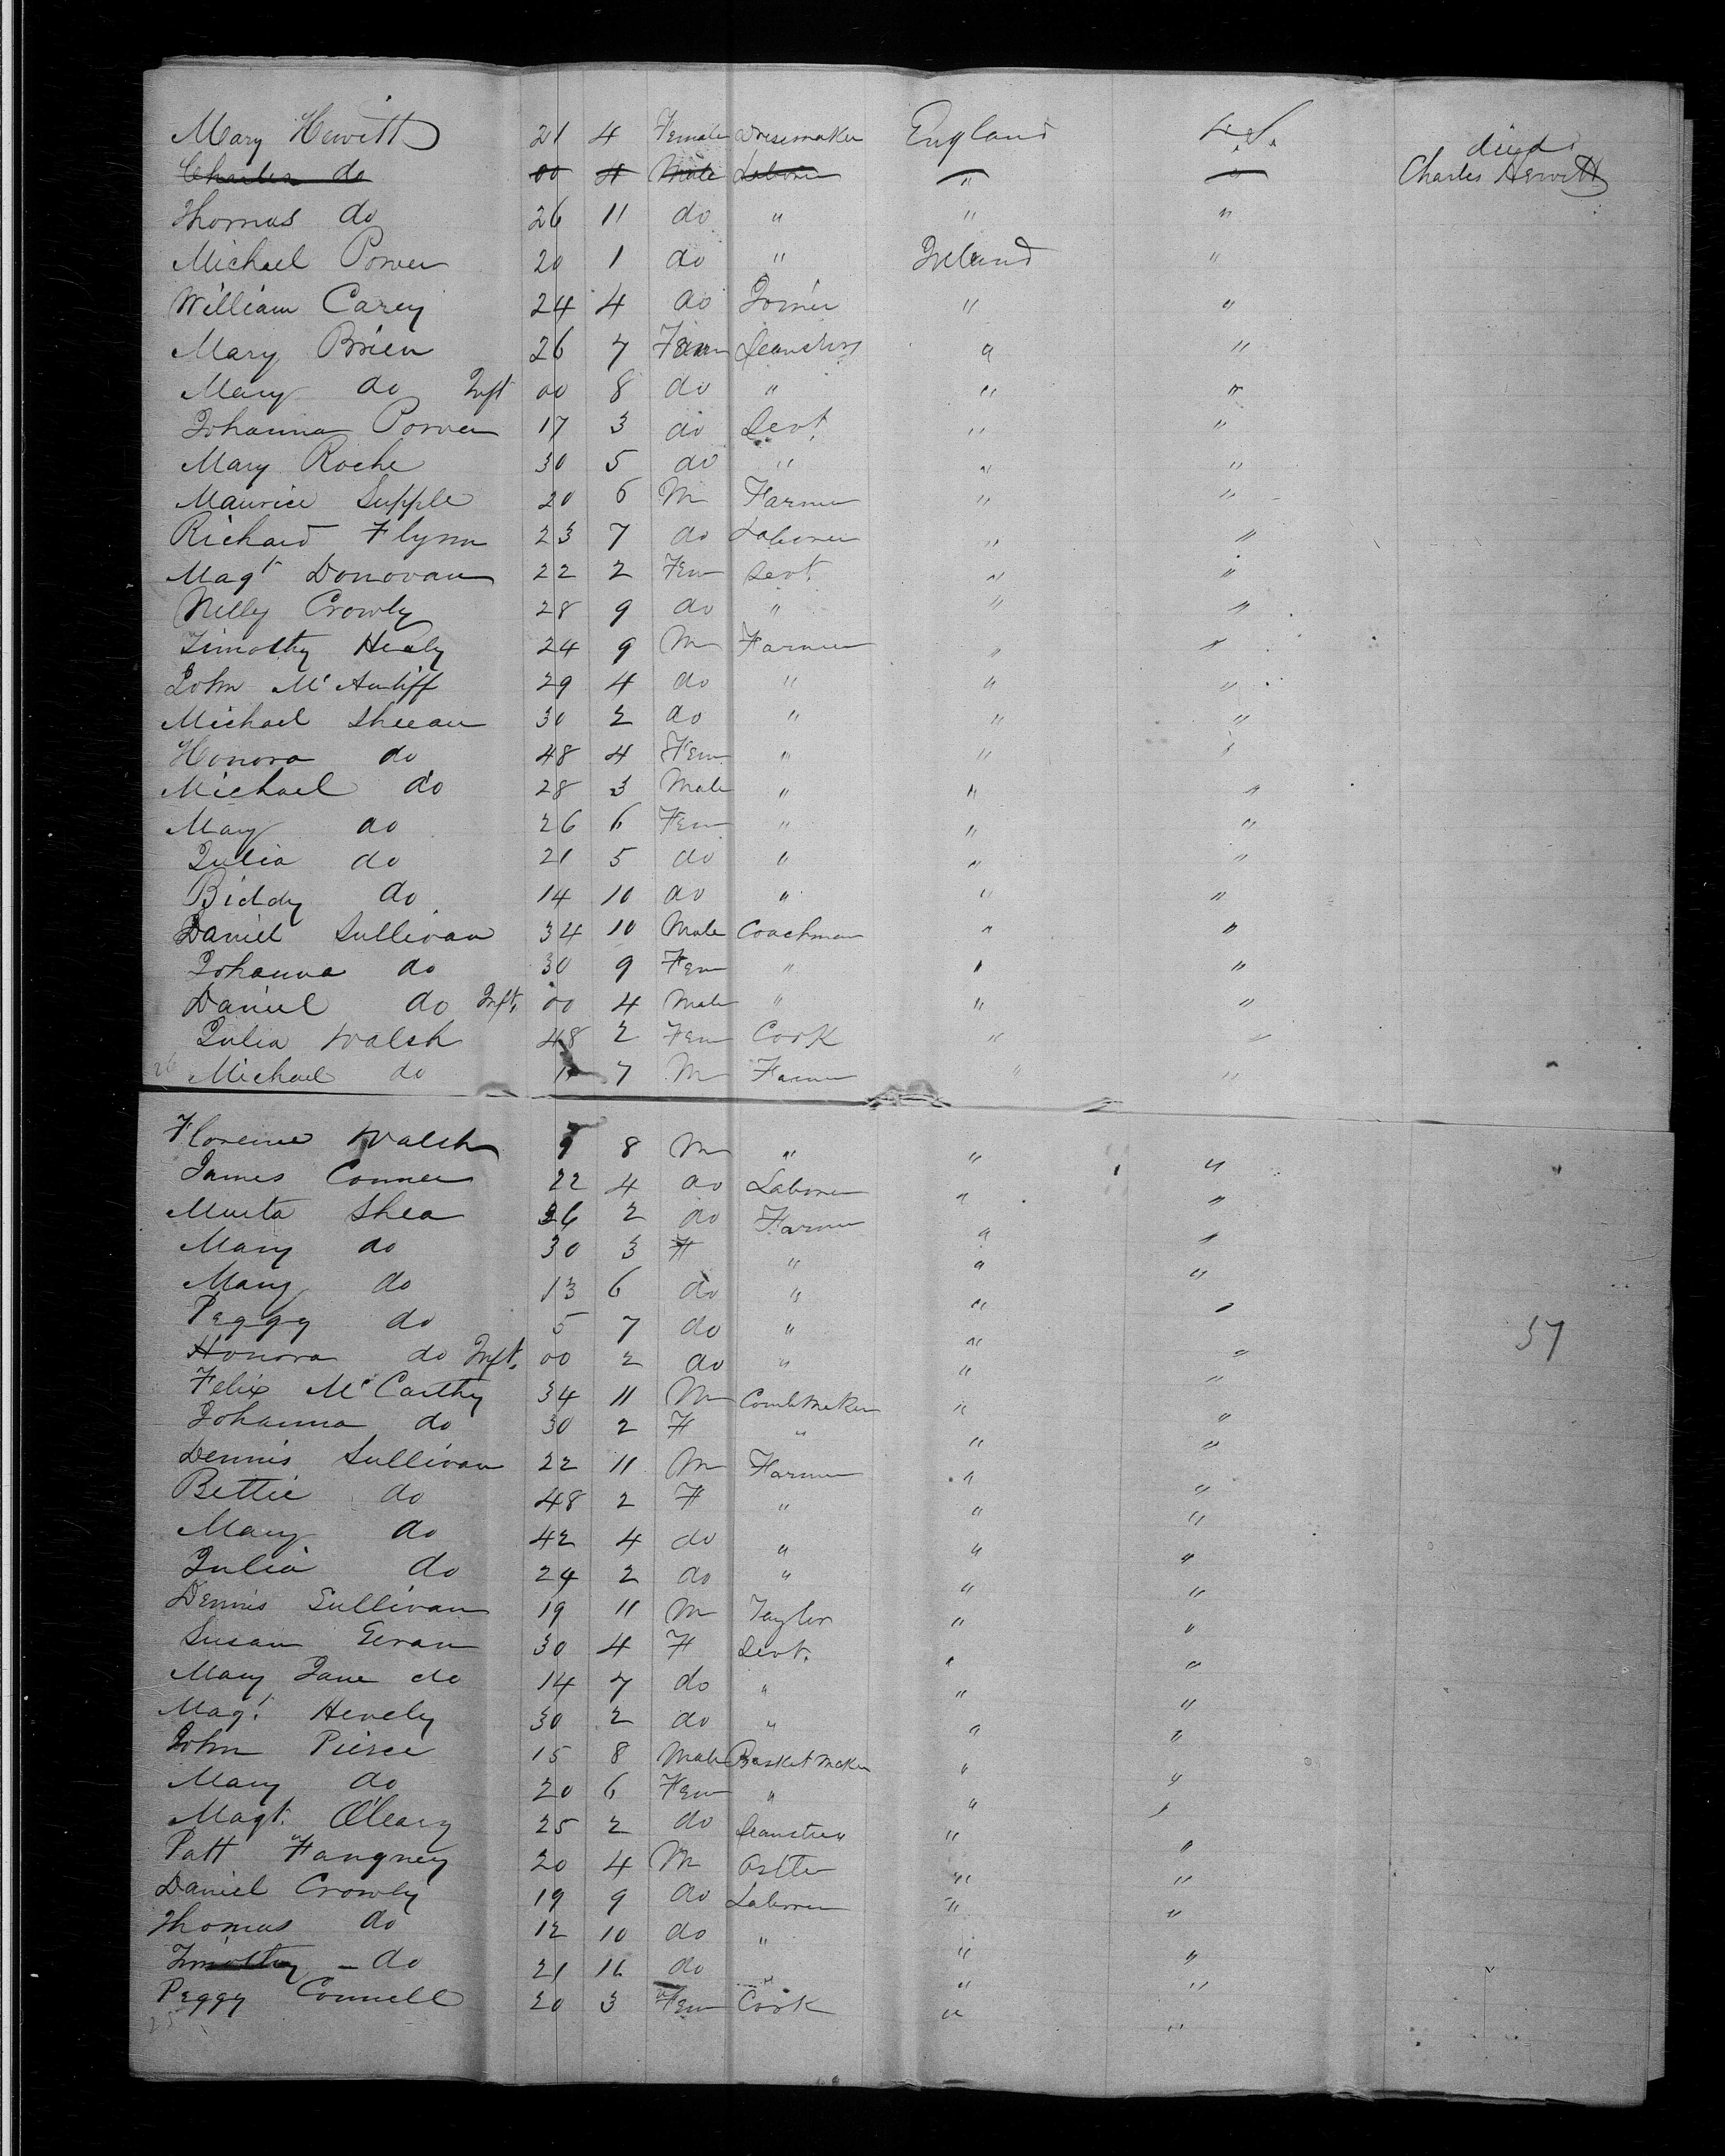 Mary Hewitt 21 4 Female Dressmaker England U.S. died
Charles do 00 4 Male Laborer " " Charles Hewitt
Thomas do 26 11 do " " "
Michael Power 20 1 do " Ireland "
William Carey 24 4 do Joiner " "
Mary Brien 26 7 Fem " "
Mary do Inft 00 8 do " " "
Johanna Power 17 3 do Servt. " "
Mary Roche 30 5 do " " "
Maurice Supple 20 6 M Farmer " "
Richard Flynn 23 7 do Laborer " "
Magt Donovan 22 2 Fem Servt. " "
Nelly Crowly 28 9 do " " "
Timothy Healy 24 9 M Farmer " "
John McAuliff 29 4 do " " "
Michael Sheean 30 2 do " " "
Honora do 48 4 Fem " " "
Michael do 28 3 Male " " "
Mary do 26 6 Fem " " "
Julia do 21 5 do " " "
Biddy do 14 10 do " " "
Daniel Sullivan 34 10 Male Coachman " "
Johanna do 30 9 Fem " " "
Daniel do Inft. 00 4 Male " " "
Julia Walsh 48 2 Fem Cook " "
26 Michael do 7 M Farmer " "
Florence Walsh 9 8 M " " "
James Conner 22 4 do Laborer " "
Murta Shea 36 2 do Farmer " "
Mary do 30 3 F " " "
Mary do 13 6 do " " "
Peggy do 5 7 do " " "
57
Honora do Inft. 00 2 do " " "
Felix McCarthy 34 11 M Combmaker " "
Johanna do 30 2 F " " "
Dennis Sullivan 22 11 M Farmer " "
Bettie do 48 2 F " " "
Mary do 42 4 do " " "
Julia do 24 2 do " " "
Dennis Sullivan 19 11 M Taylor " "
Susan 30 4 F Servt. " "
Mary Jane do 14 7 do " " "
Magt. Hevely 30 2 do " " "
John Pierce 15 8 Male Basket maker " "
Mary do 20 6 Fem " " "
Magt. O'Leary 25 2 do Seamstress " "
Patt Fangney 20 4 M Ostler " "
Daniel Crowly 19 9 do Laborer " "
Thomas do 12 10 do " " "
Timothy - do 21 11 do " " "
Peggy Connell 20 3 Fem Cook " "
25